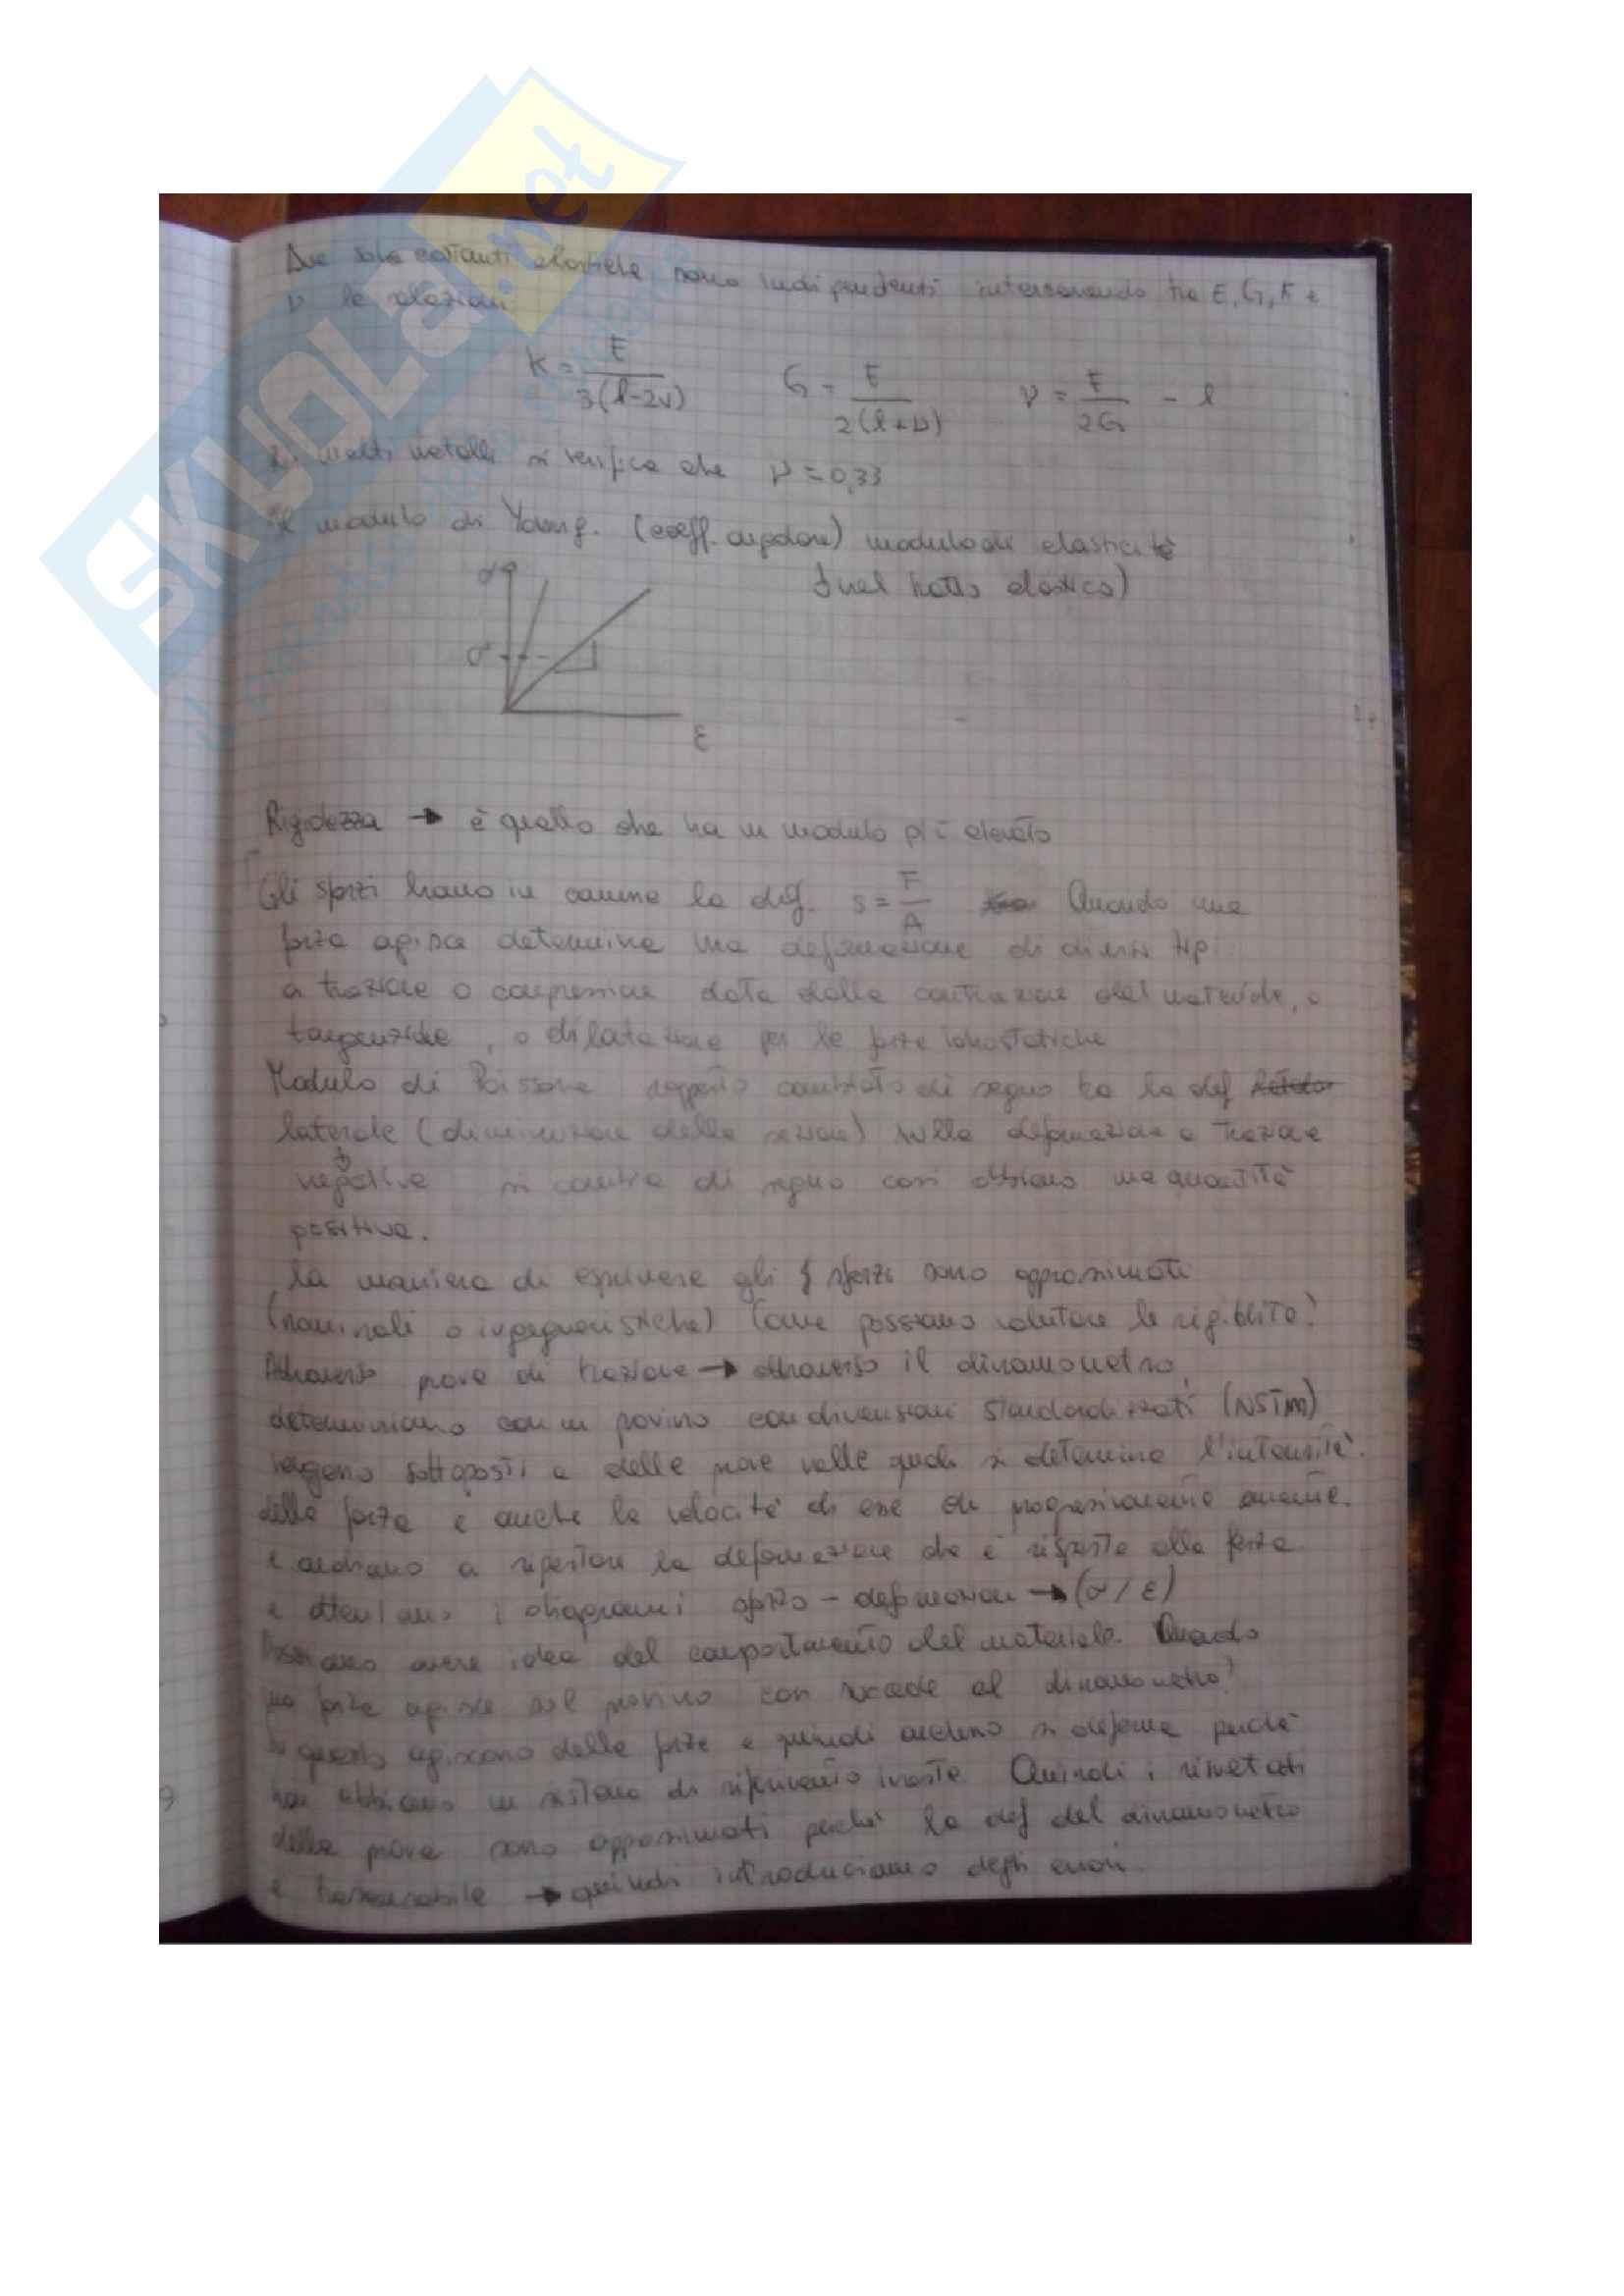 SKUOLA.net
Due sole costanti elastiche sono indipendenti intercorrendo tra E, G, K e
ν le relazioni
K = E / 3(1-2ν)    G = E / 2(1+ν)    ν = E / 2G - 1
molti metalli si verifica che ν = 0,33
modulo di Young. (coeff. angolare) modulo di elasticità
(nel tratto elastico)
σ
σ
ε
Rigidezza → è quello che ha un modulo più elevato
Gli sforzi hanno in comune la def. s = F / A Quando una
forza agisce determina una deformazione di diversi tipi
a trazione o compressione data dalla contrazione del materiale, o
tangenziale, o dilatazione per le forze idrostatiche
Modulo di Poisson rapporto cambiato di segno tra la def
laterale (diminuzione della sezione) sulla deformazione a trazione
negativa si cambia di segno così abbiamo una quantità
positiva.
la maniera di esprimere gli sforzi sono approssimati
(nominali o ingegneristiche) Come possiamo valutare la rigidità?
Attraverso prove di trazione → attraverso il dinamometro,
determiniamo con un provino con dimensioni standardizzati (NSTM)
vengono sottoposti a delle prove nelle quali si determina l'intensità
della forza e anche la velocità di essa che progressivamente aumenta.
e andiamo a riportare la deformazione che è risposta alla forza
e otteniamo i diagrammi sforzo - deformazioni → (σ / ε)
Possiamo avere idea del comportamento del materiale. Quando
una forza agisce sul provino cosa succede al dinamometro?
questo agiscono delle forze e quindi anch'esso si deforma perché
noi abbiamo un sistema di riferimento inerte. Quindi i risultati
della prova sono approssimati perché la def del dinamometro
è trascurabile → quindi introduciamo degli errori.